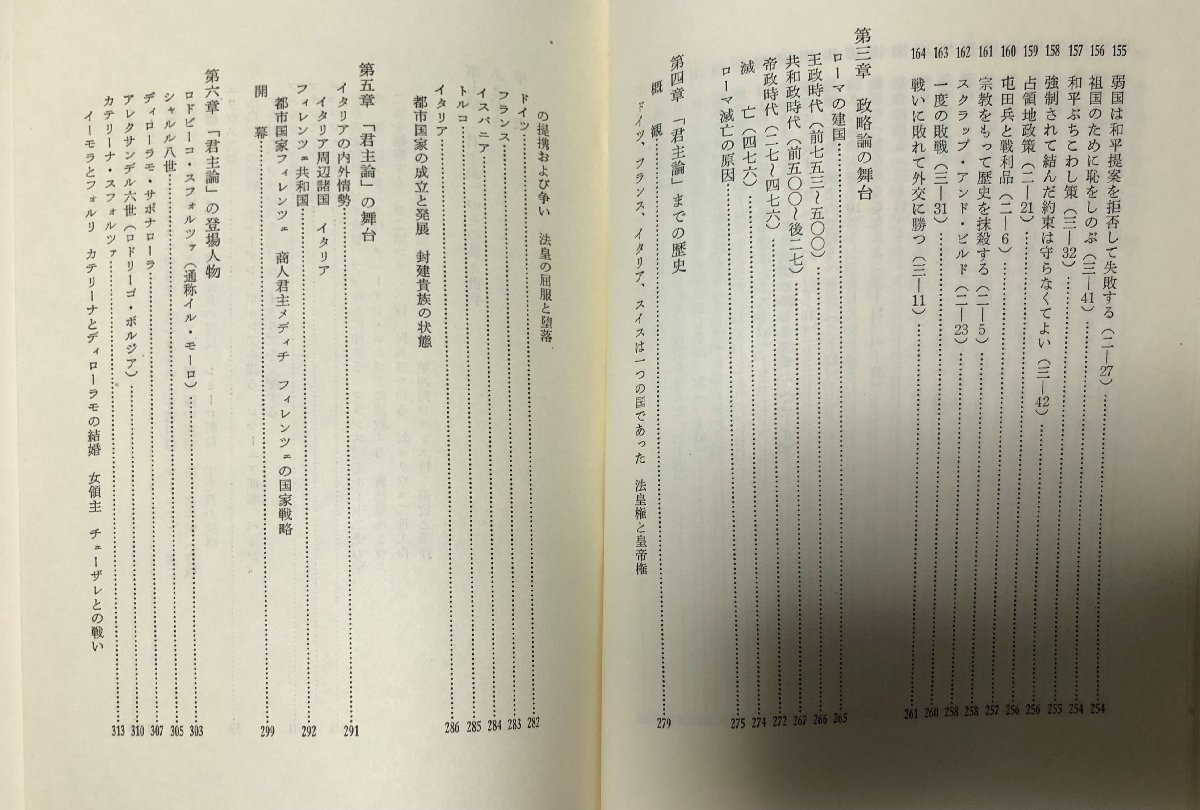 155 弱国は和平提案を拒否して失敗する（二―27）……254
156 祖国のために恥をしのぶ（三―41）……254
157 和平ぶちこわし策（三―32）……254
158 強制されて結んだ約束は守らなくてよい（三―42）……255
159 占領地政策（二―21）……256
160 屯田兵と戦利品（二―6）……256
161 宗教をもって歴史を抹殺する（二―5）……257
162 スクラップ・アンド・ビルド（二―23）……258
163 一度の敗戦（三―31）……260
164 戦いに敗れて外交に勝つ（三―11）……261
第三章 政略論の舞台
ローマの建国……265
王政時代（前七五三～五〇〇）……266
共和政時代（前五〇〇～後二七）……267
帝政時代（二七～四七六）……272
滅亡（四七六）……274
ローマ滅亡の原因……275
第四章 「君主論」までの歴史
概観……279
ドイツ、フランス、イタリア、スイスは一つの国であった 法皇権と皇帝権
の提携および争い 法皇の屈服と堕落
ドイツ……282
フランス……283
イスパニア……284
トルコ……285
イタリア……286
都市国家の成立と発展 封建貴族の状態
第五章 「君主論」の舞台
イタリアの内外情勢……291
イタリア周辺諸国 イタリア
フィレンツェ共和国……292
都市国家フィレンツェ 商人君主メディチ フィレンツェの国家戦略
開幕……299
第六章 「君主論」の登場人物
ロドビーコ・スフォルツァ（通称イル・モーロ）……303
シャルル八世……305
ディローラモ・サボナローラ……307
アレクサンデル六世（ロドリーゴ・ボルジア）……310
カテリーナ・スフォルツァ……313
イーモラとフォルリ カテリーナとディローラモの結婚 女領主 チェーザレとの戦い